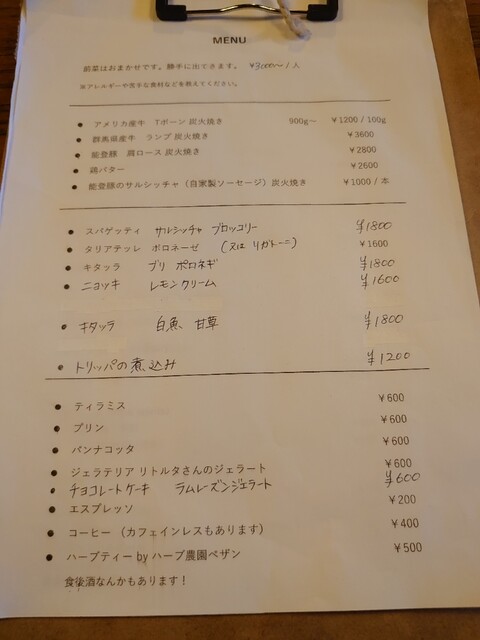 MENU
前菜はおまかせです。勝手に出てきます。 ¥3000〜/人
※アレルギーや苦手な食材などを教えてください。
● アメリカ産牛 Tボーン 炭火焼き 900g〜 ¥1200 / 100g
● 群馬県産牛 ランプ 炭火焼き ¥3600
● 能登豚 肩ロース 炭火焼き ¥2800
● 鶏バター ¥2600
● 能登豚のサルシッチャ（自家製ソーセージ）炭火焼き ¥1000 / 本
● スパゲッティ サルシッチャ ブロッコリー ¥1800
● タリアテッレ ボロネーゼ (又は リガトーニ) ¥1600
● キタッラ ブリ ポロネギ ¥1800
● ニョッキ レモンクリーム ¥1600
● キタッラ 白魚、甘草 ¥1800
● トリッパの煮込み ¥1200
● ティラミス ¥600
● プリン ¥600
● パンナコッタ ¥600
● ジェラテリア リトルタさんのジェラート ¥600
● チョコレートケーキ ラムレーズンジェラート ¥600
● エスプレッソ ¥200
● コーヒー（カフェインレスもあります） ¥400
● ハーブティー by ハーブ農園ペザン ¥500
食後酒なんかもあります！